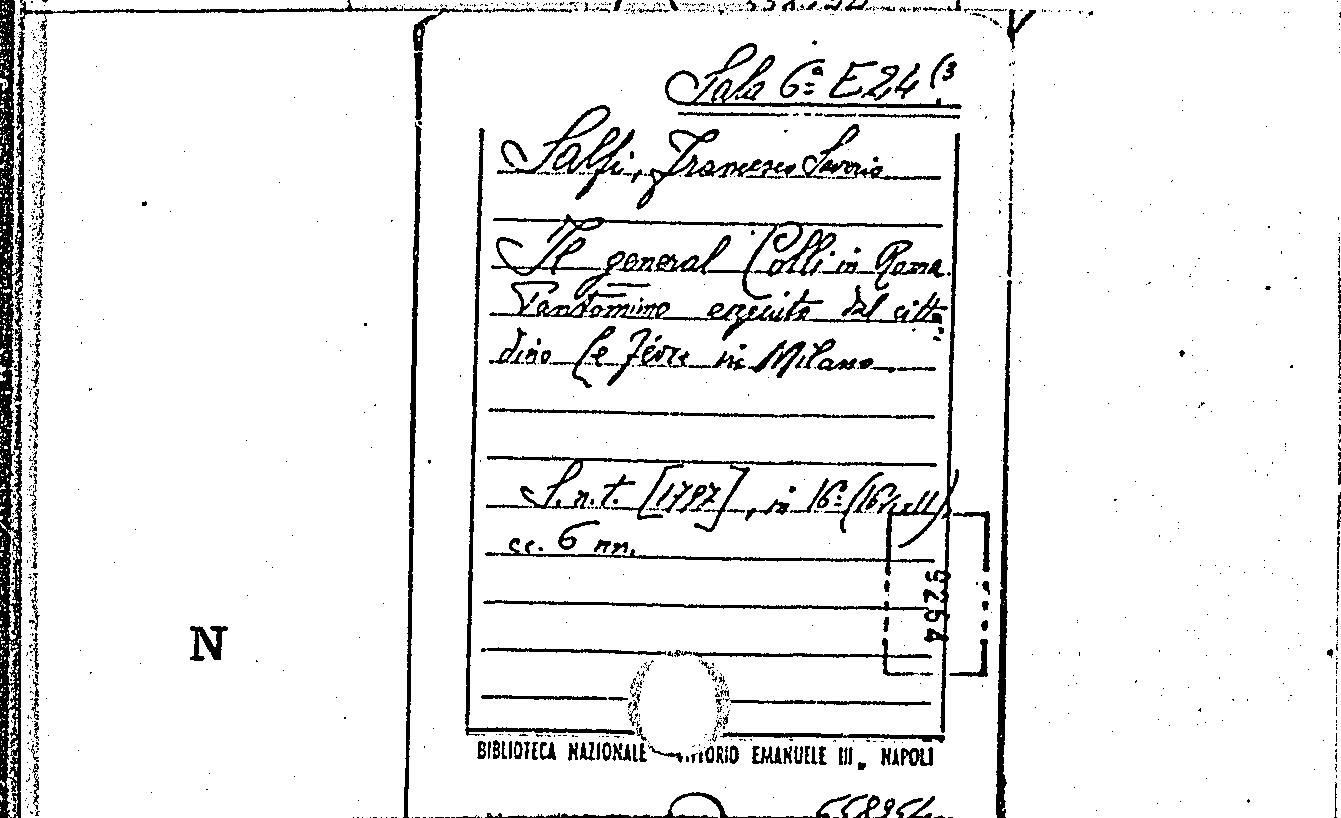 Sala 6ª E24(3
Salfi, Francesco Saverio
Il general Colli in Roma.
Pantomimo eseguito dal citta-
dino Le Févre in Milano.
S.n.t. [1797], in 16º (16x11)
cc. 6 nn.
9254
N
BIBLIOTECA NAZIONALE VITTORIO EMANUELE III. NAPOLI